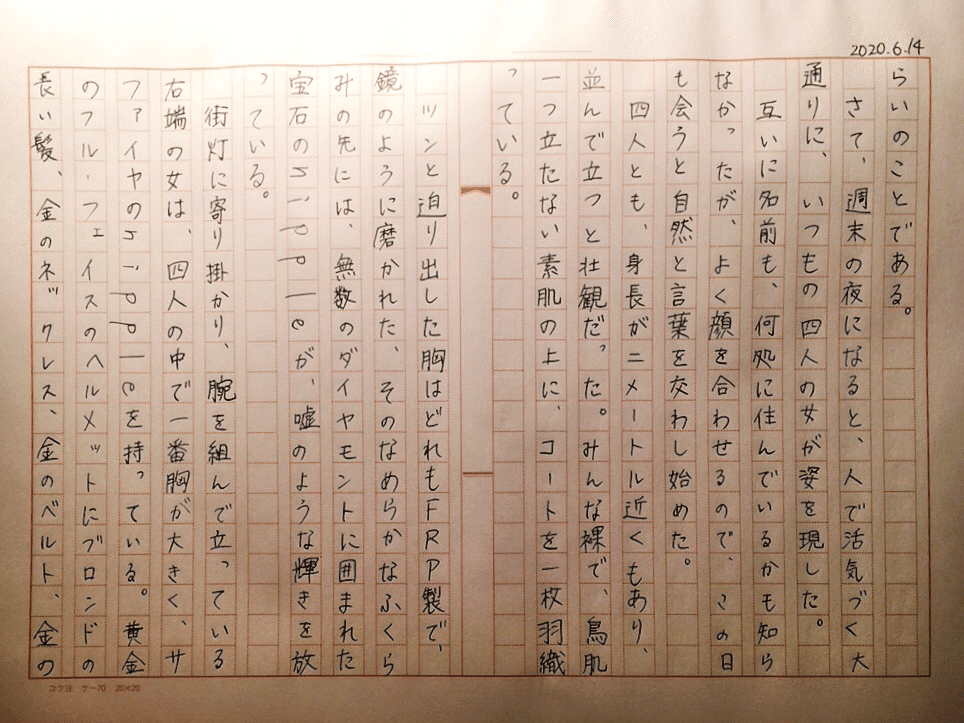 2020.6.14
らいのことである。
さて、週末の夜になると、人で活気づく大
通りに、いつもの四人の女が姿を現した。
互いに名前も、何処に住んでいるかも知ら
なかったが、よく顔を合わせるので、この日
も会うと自然と言葉を交わし始めた。
四人とも、身長が二メートル近くもあり、
並んで立つと壮観だった。みんな裸で、鳥肌
一つ立たない素肌の上に、コートを一枚羽織
っている。
ツンと迫り出した胸はどれもFRP製で、
鏡のように磨かれた、そのなめらかなふくら
みの先には、無数のダイヤモンドに囲まれた
宝石のnippleが、嘘のような輝きを放
っている。
街灯に寄り掛かり、腕を組んで立っている
右端の女は、四人の中で一番胸が大きく、サ
ファイヤのnippleを持っている。黄金
のフル・フェイスのヘルメットにブロンドの
長い髪、金のネックレス、金のベルト、金の
コクヨ ケー70 20×20